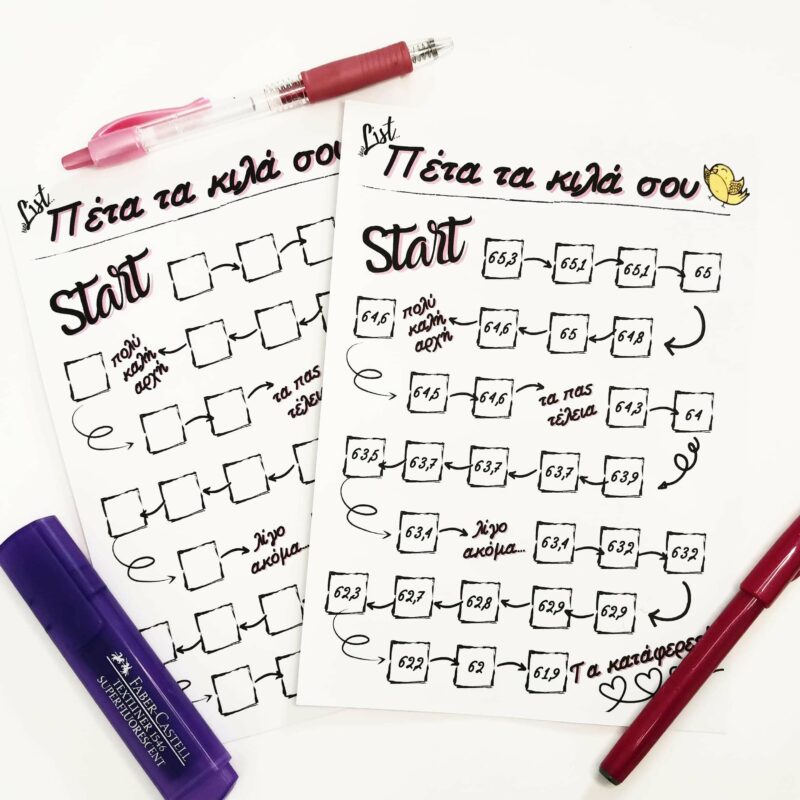 List
Πέτα τα κιλά σου
Start
πολύ
καλή
αρχή
τα πας
τέλεια
λίγο
ακόμα...
List
Πέτα τα κιλά σου
Start
65,3 65,1 65,1 65
64,6 πολύ καλή αρχή 64,6 65 64,8
64,5 64,6 τα πας τέλεια 64,3 64
63,5 63,7 63,7 63,7 63,9
63,4 λίγο ακόμα... 63,4 63,2 63,2
62,3 62,7 62,8 62,9 62,9
62,2 62 61,9 Τα κατάφερες
FABER-CASTELL
TEXTLINER 1546
SUPERFLUORESCENT